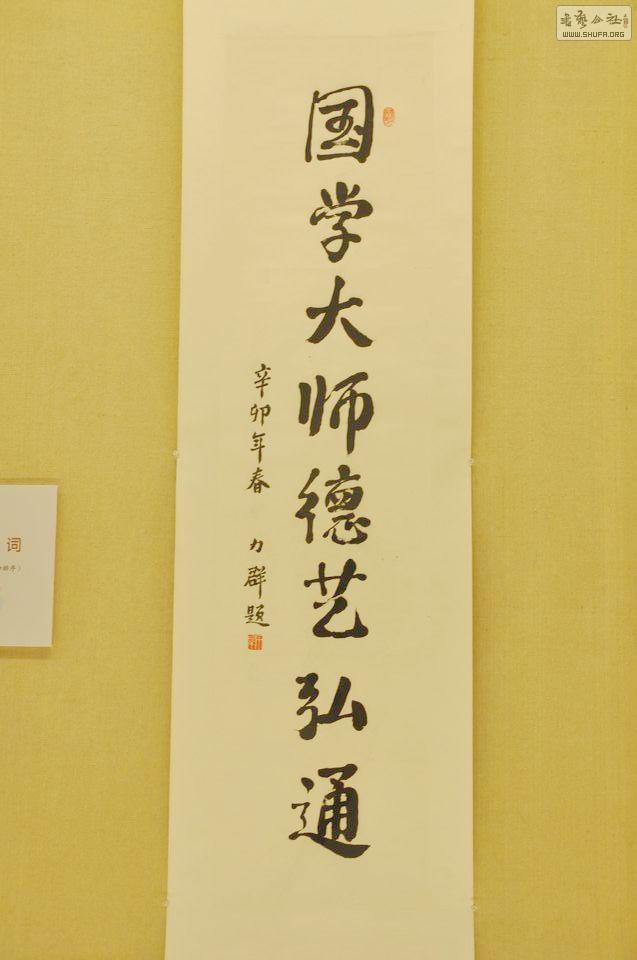 国学大师德艺弘通
辛卯年春 力群题
词
书艺公社
WWW.SHUFA.ORG